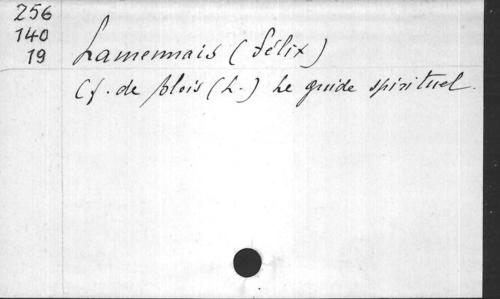 256
140
19
Lamennais (Félix)
Cf. de Blois (L.) Le guide spirituel.